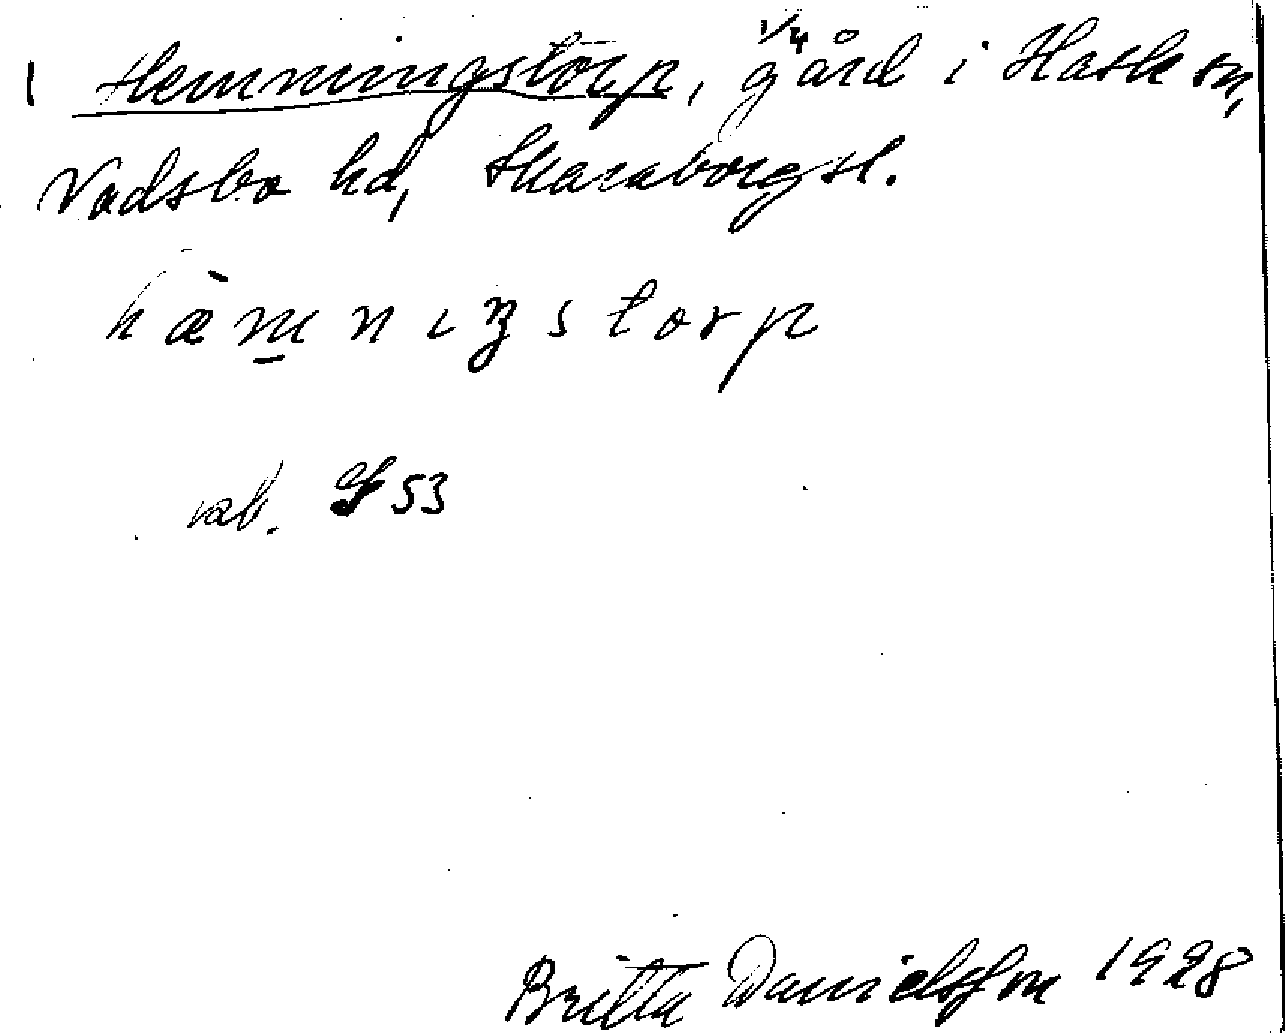 1 Hemmingstorp, 1/4 gård i Hassle sn,
Vadsbo hd, Skaraborgsl.
hæ̀m̲nıȥstorp
53
Britta Danielsson 1928